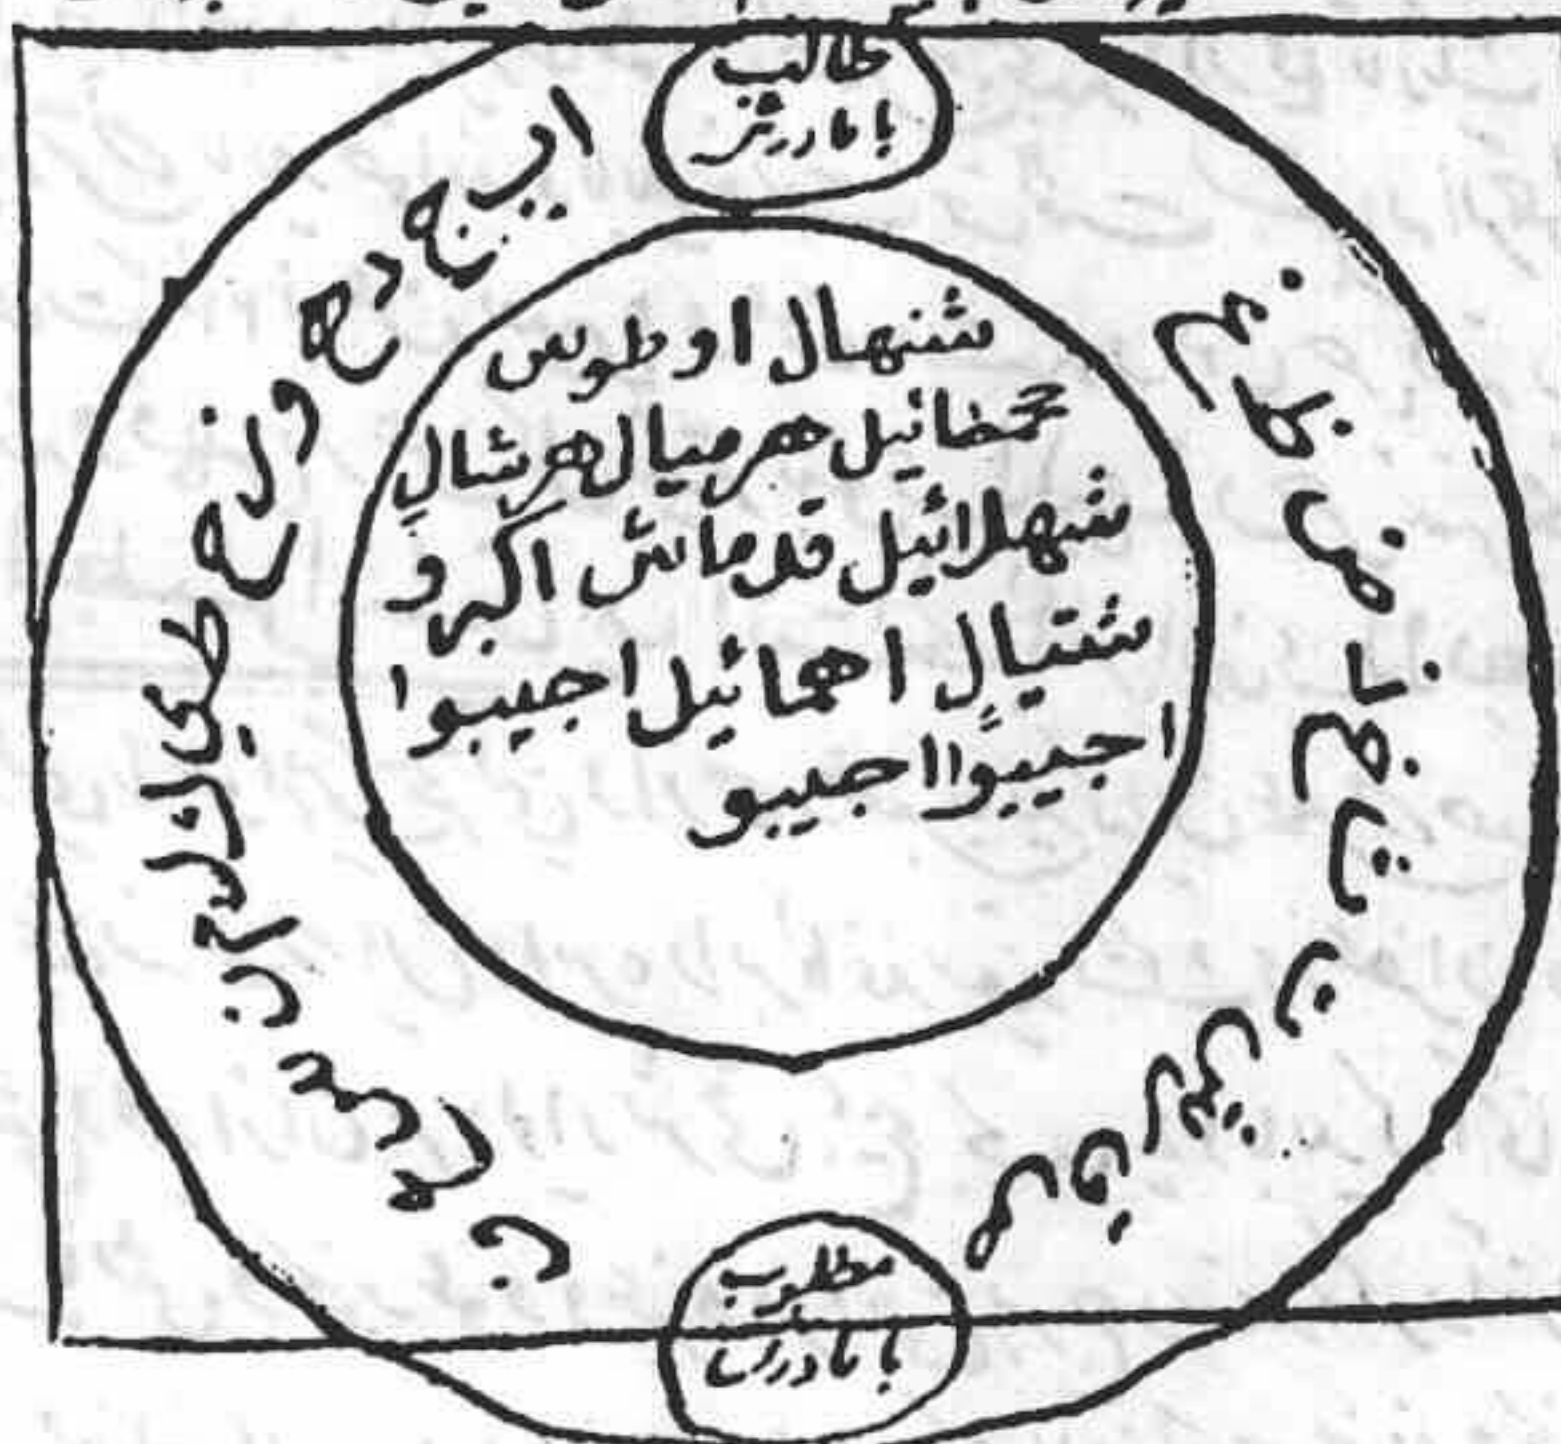 طالب
با مادرش
ا ب ج د ح و ز ح ط ی ک ل م ن س ع ف
ص ق ر ش ت ث خ ذ ض ظ غ
شنهال اوطوس
هرمیال هرشال
شهلائیل قدماش اکبر و
شتیال اهمائیل اجیبوا
اجیبوا اجیبو
مطلوب
با مادرش